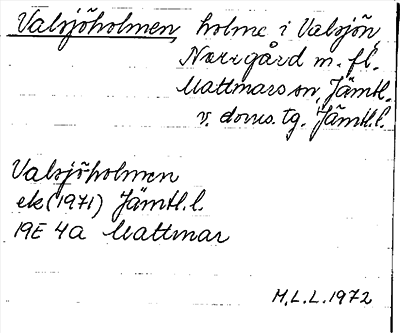 Valsjöholmen, holme i Valsjön,
Norrgård m. fl.
Mattmars sn, Jämtl.
v. doms. tg. Jämtl. l.
Valsjöholmen
ek (1971) Jämtl. l.
19E 4a Mattmar
M.L.L. 1972